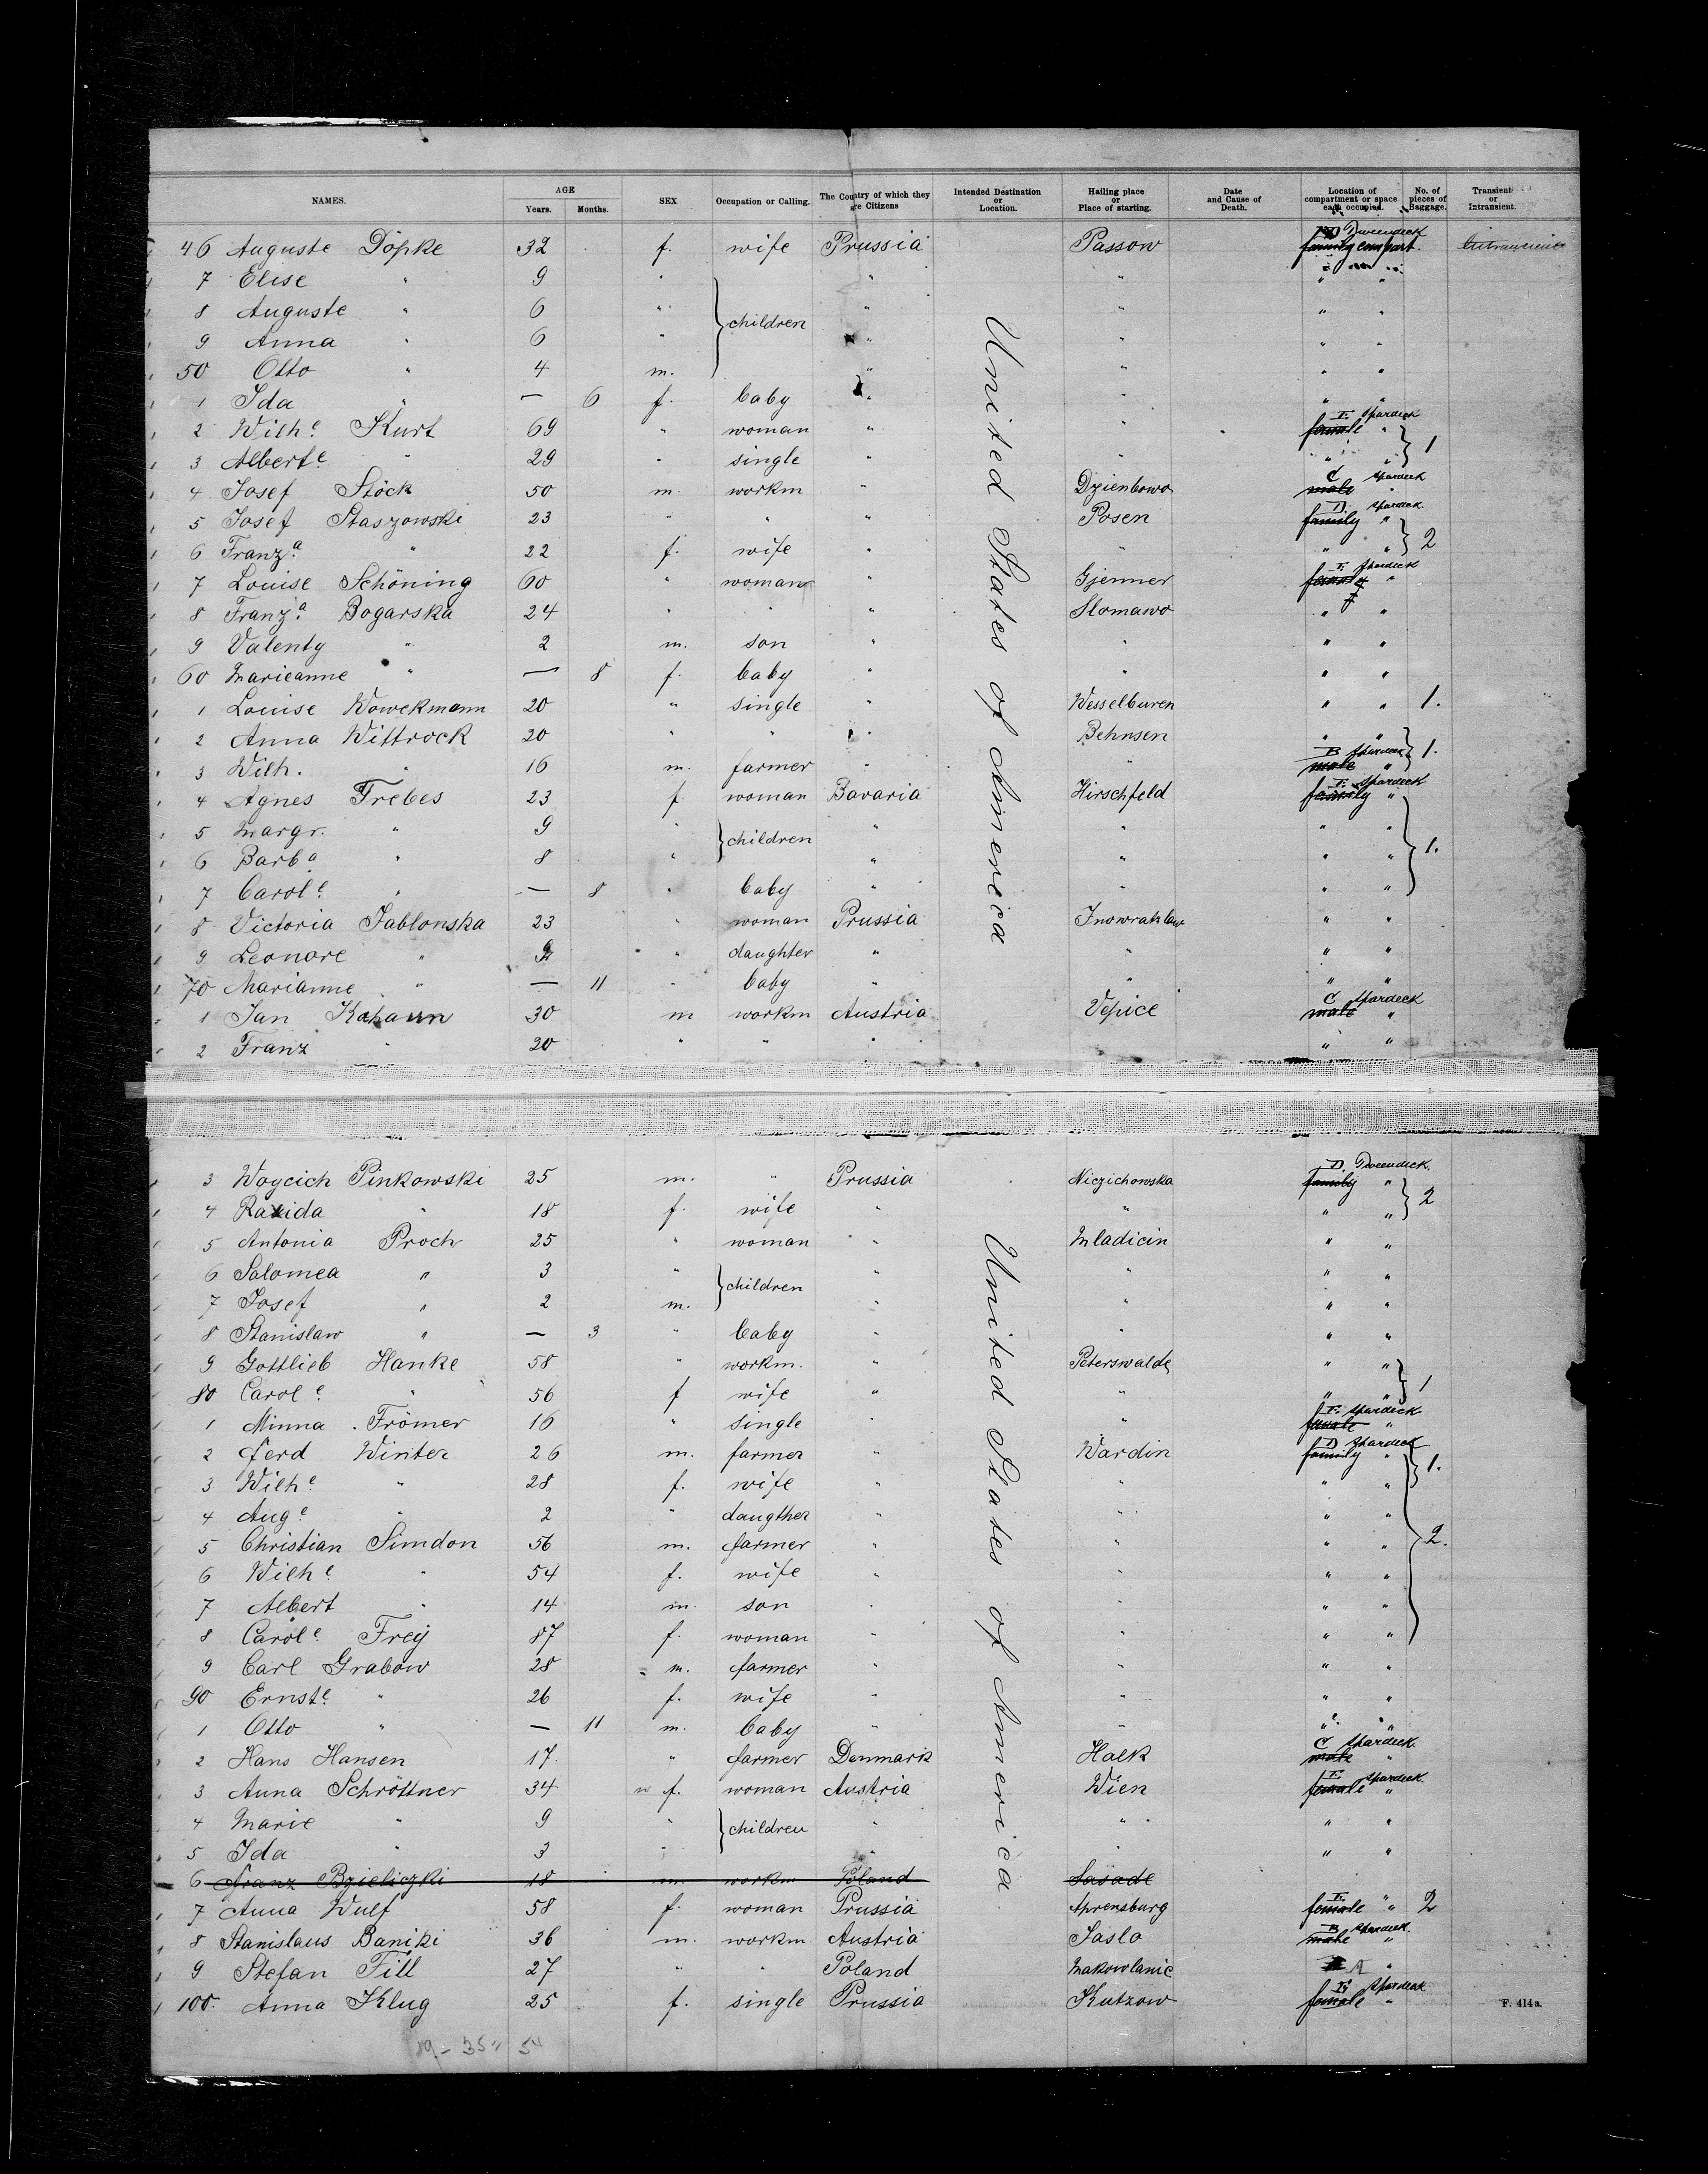 NAMES. AGE Years. Months. SEX Occupation or Calling. The Country of which they are Citizens Intended Destination or Location. Hailing place or Place of starting. Date and Cause of Death. Location of compartment or space each occupied. No. of pieces of Baggage. Transient or Intransient.
46 Auguste Döpke 32 f. wife Prussia Passow D Tweendeck family compart.
7 Elise " 9 " " " " "
8 Auguste " 6 " children " " " "
9 Anna " 6 " " " " "
50 Otto " 4 m. " " " "
1 Ida " — 6 f. baby " " " "
2 Wilhe. Kurt 69 " woman " " F. Spardeck female "
3 Alberte " 29 " single " " " " 1
4 Josef Stöck 50 m. workm " Dzienbowo C Spardeck male "
5 Josef Staszowski 23 " " " Posen D. Spardeck family "
6 Franza. " 22 f. wife " " " " 2
7 Louise Schöning 60 " woman " Gjenner F. Spardeck female "
8 Franza. Bogarska 24 " " " Slomawo " "
9 Valenty " 2 m. son " " " "
60 Marieanne " — 8 f. baby " " " "
1 Louise Wowekmann 20 " single " Wesselburen " " 1.
2 Anna Wittrock 20 " " " Behnsen " "
3 Wilh. " 16 m. farmer " " B Spardeck male " 1.
4 Agnes Trebes 23 f woman Bavaria Hirschfeld F. Spardeck family "
5 Margr. " 9 " children " " " "
6 Barba " 8 " " " " " 1.
7 Carole " — 8 " baby " " " "
8 Victoria Jablonska 23 " woman Prussia Inowratzlaw " "
9 Leonore " " daughter " " " "
70 Marianne " — 11 " baby " " " "
1 Jan Kahaun 30 m workm Austria Vepice C Spardeck male "
2 Franz " 20 " " " " "
3 Woycich Pinkowski 25 m. " Prussia Niczichowska D. Tweendeck. family "
4 " 18 f. wife " " " " 2
5 Antonia Proch 25 " woman " Mladicin " "
6 Salomea " 3 " children " " " "
7 Josef " 2 m. " " " "
8 Stanislaw " — 3 " baby " " " "
9 Gottlieb Hanke 58 " workm. " Peterswalde " "
80 Carole " 56 f wife " " " " 1
1 Minna Frömer 16 " single " " F. Spardeck female "
2 Ferd Winter 26 m. farmer " Wardin D Spardeck family "
3 Wilhe. " 28 f. wife " " " " 1.
4 Auge. " 2 " daugther " " " "
5 Christian Simdon 56 m. farmer " " " " 2.
6 Wilhe. " 54 f. wife " " " "
7 Albert " 14 m. son " " " "
8 Carole. Frey 87 f. woman " " " "
9 Carl Grabow 28 m. farmer " " " "
90 Ernste. " 26 f. wife " " " "
1 Otto " — 11 m. baby " " " "
2 Hans Hansen 17. " farmer Denmark Halk C Spardeck. male "
3 Anna Schröttner 34 f. woman Austria Wien F. Spardeck. female "
4 Marie " 9 " children " " " "
5 Ida " 3 " " " " "
6 Franz Bzieliczki 18 m. workm Poland Sasade
7 Anna Wulf 58 f. woman Prussia Aprensburg F. female " 2
8 Stanislaus Baniki 36 m. workm Austria Jaslo B Spardeck. male "
9 Stefan Till 27 " " Poland Makowlanie "
100. Anna Klug 25 f. single Prussia Kutzow F. Spardeck female "
United States of America
United States of America.
F. 414a.